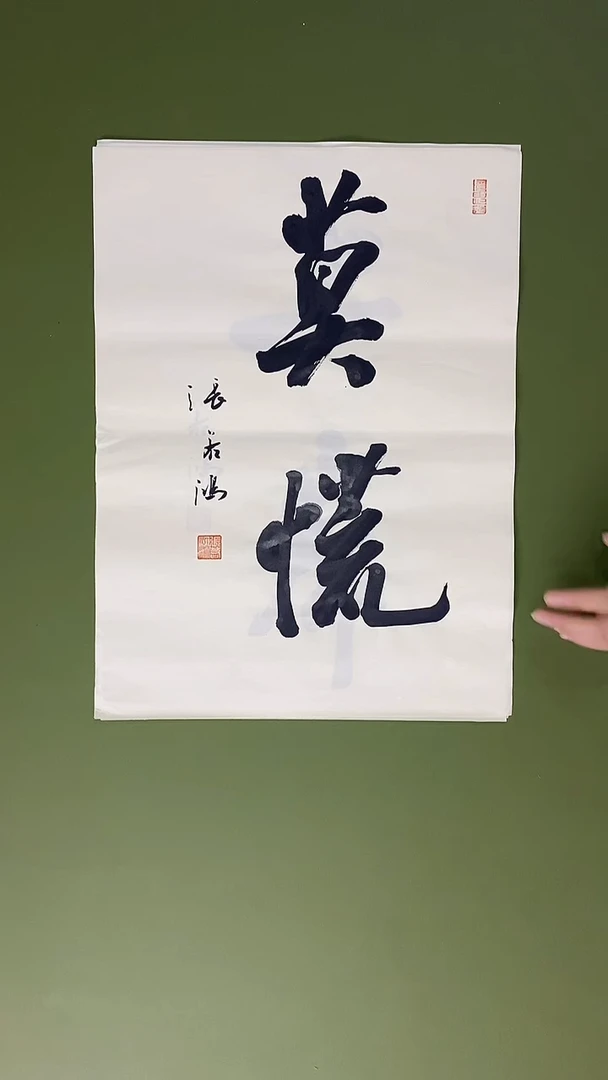 莫慌
張若鴻